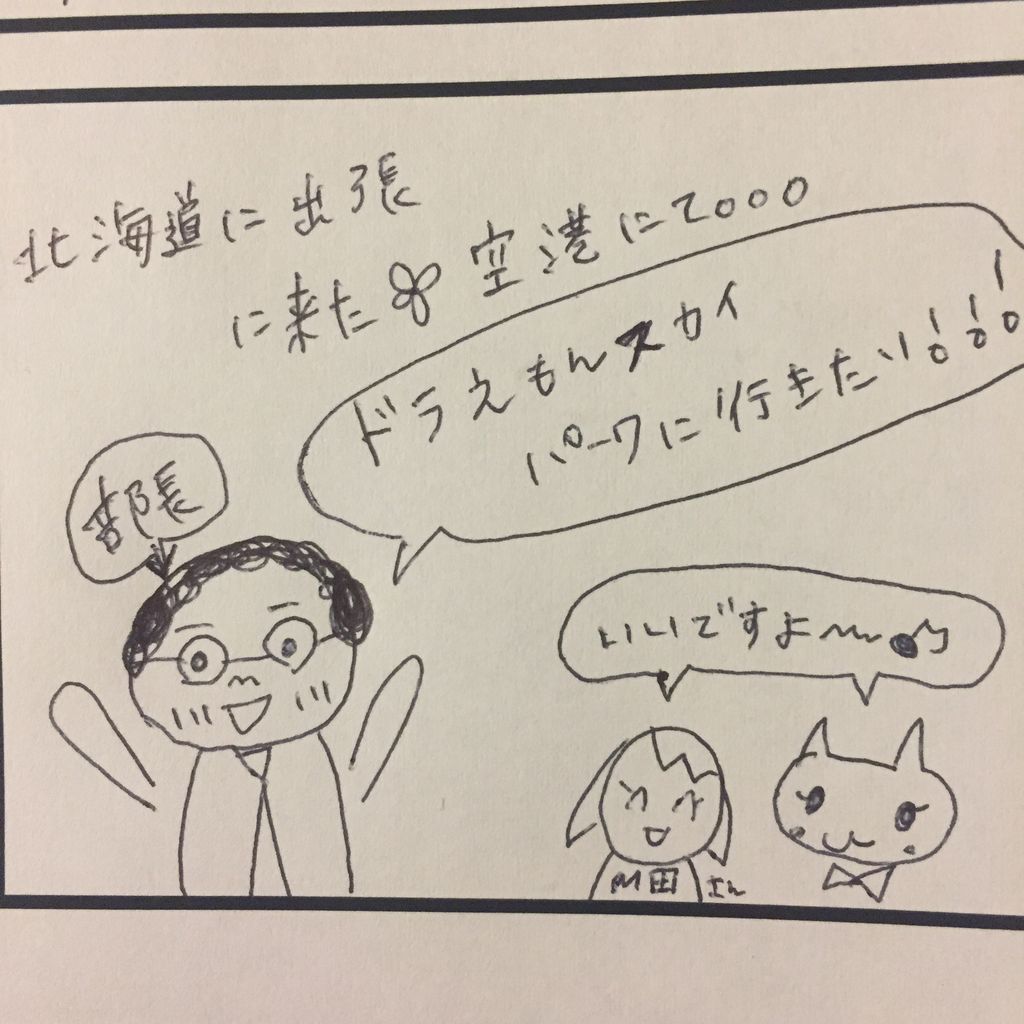 北海道に出張
に来た 空港にて。。。
ドラえもんスカイ
パークに行きたい!!!
部長
いいですよ〜
田さん